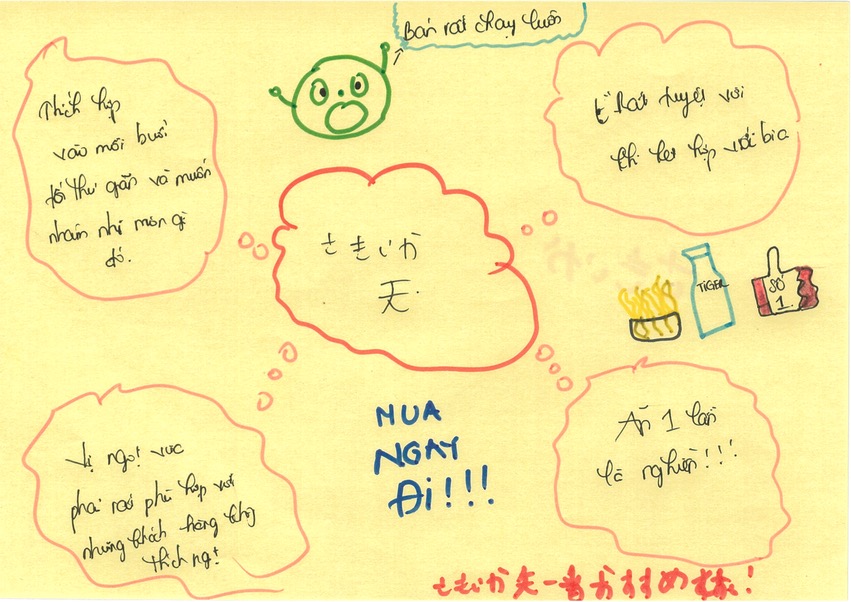 Bán rất chạy luôn
Thích hợp
vào mỗi buổi
tối thư giãn và muốn
nhâm nhi món gì
đó.
Rất tuyệt vời
khi kết hợp với bia
さきいか
天
TIGER
SỐ
1.
MUA
NGAY
ĐI!!!
Vị ngọt vừa
phải rất phù hợp với
những khách hàng
thích ngọt
Ăn 1 lần
là nghiền!!!
さきいか天一番おすすめ